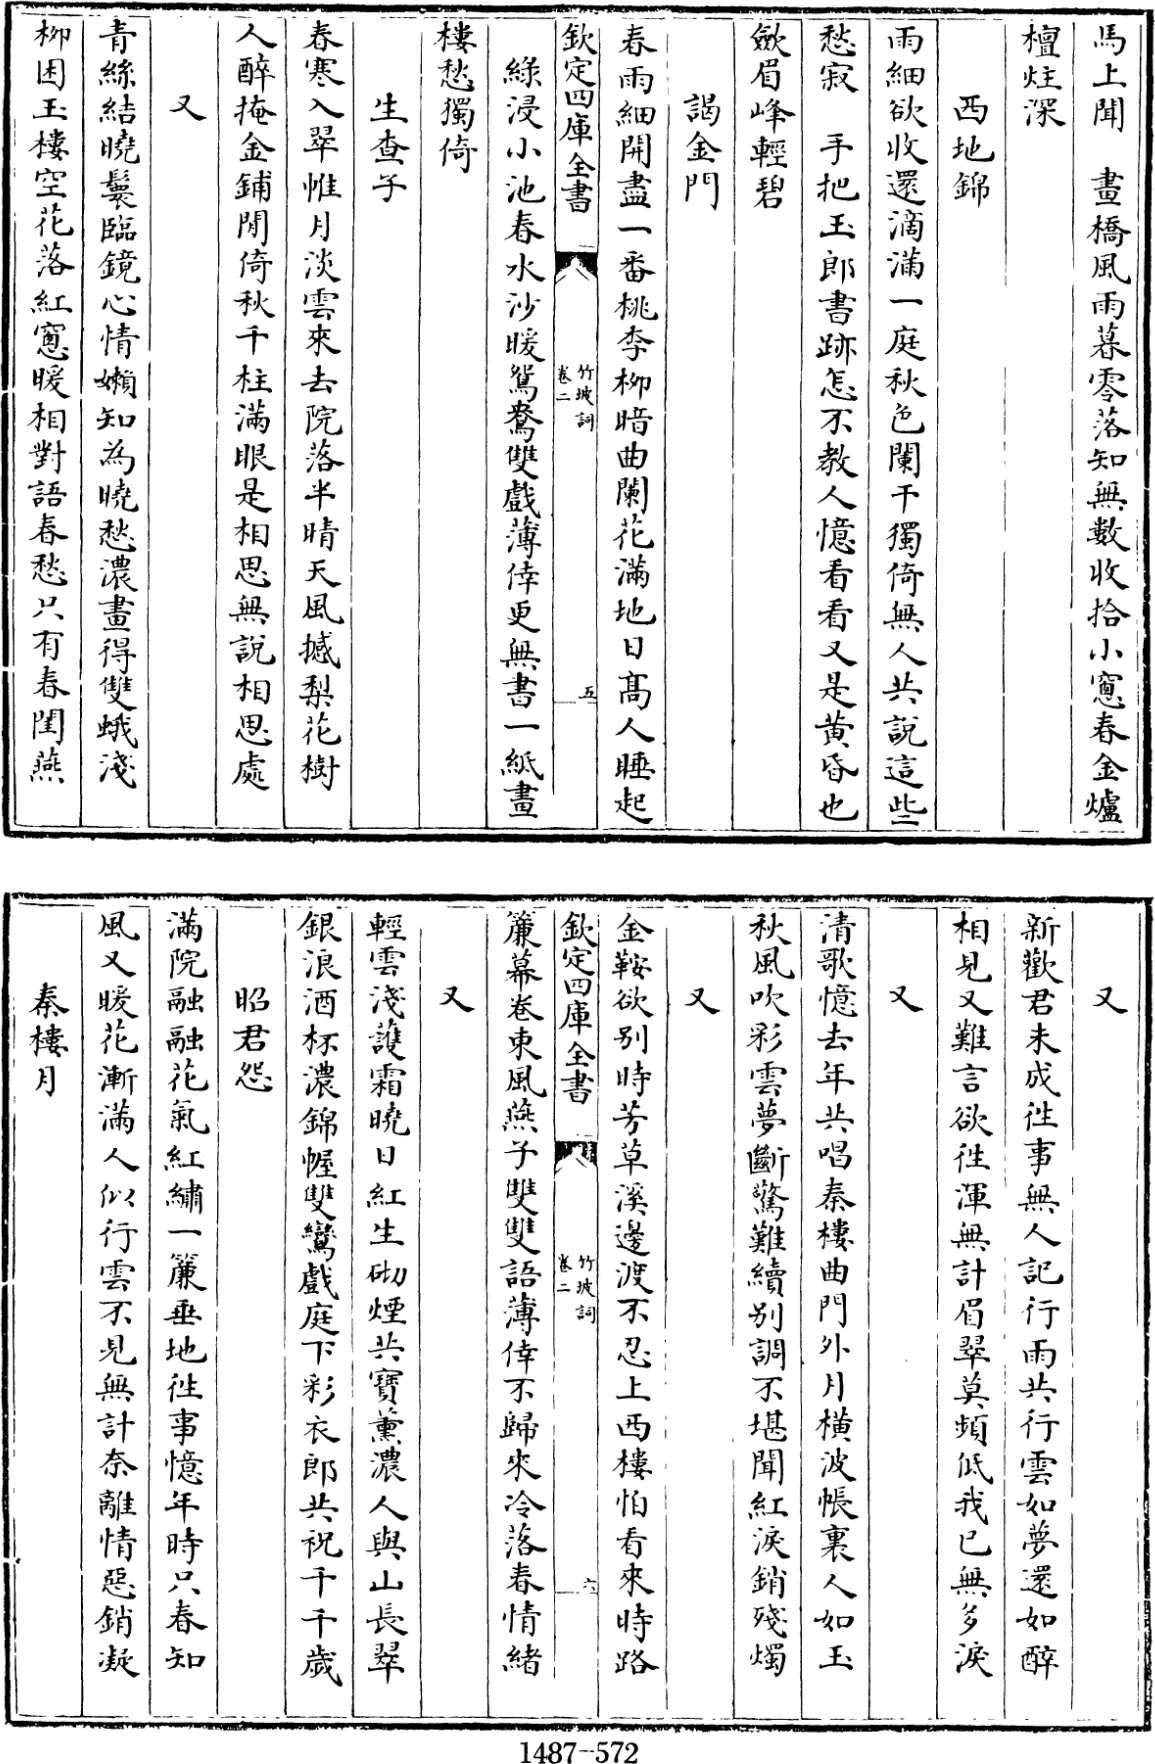 馬上聞　畫橋風雨暮零落知無數收拾小窻春金爐
檀炷深
西地錦
雨細欲收還滴滿一庭秋色闌干獨倚無人共說這些
愁寂　手把玉郎書跡怎不教人憶看看又是黄昏也
斂眉峰輕碧
謁金門
春雨細開盡一番桃李柳暗曲闌花滿地日髙人睡起
欽定四庫全書
竹坡詞
卷二
五
綠浸小池春水沙暖鴛鴦雙戲薄倖更無書一紙畫
樓愁獨倚
生查子
春寒入翠帷月淡雲來去院落半晴天風撼梨花樹
人醉掩金鋪閒倚秋千柱滿眼是相思無說相思處
又
青絲結曉鬟臨鏡心情嬾知為曉愁濃畫得雙蛾淺
柳困玉樓空花落紅窻暖相對語春愁只有春閨燕
又
新歡君未成徃事無人記行雨共行雲如夢還如醉
相見又難言欲徃渾無計眉翠莫頻低我已無多淚
又
清歌憶去年共唱秦樓曲門外月橫波帳裏人如玉
秋風吹彩雲夢斷驚難續别調不堪聞紅淚銷殘燭
又
金鞍欲别時芳草溪邊渡不忍上西樓怕看來時路
欽定四庫全書
竹坡詞
卷二
六
簾幕卷東風燕子雙雙語薄倖不歸來冷落春情緒
又
輕雲淺護霜曉日紅生砌煙共寶薰濃人與山長翠
銀浪酒杯濃錦幄雙鸞戲庭下彩衣郎共祝千千歳
昭君怨
滿院融融花氣紅繡一簾垂地徃事憶年時只春知
風又暖花漸滿人似行雲不見無計奈離情惡銷凝
秦樓月
1487-572